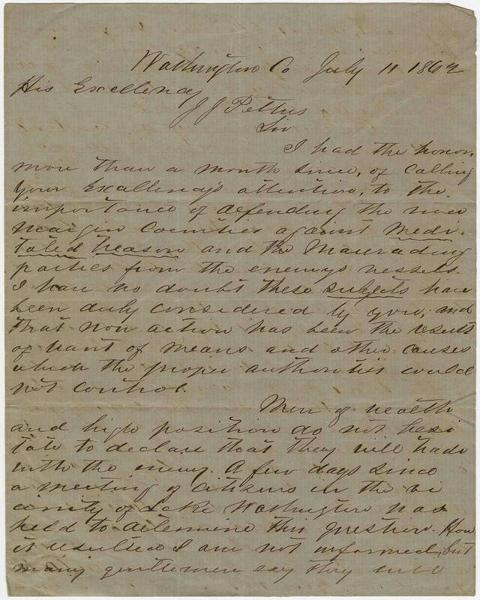 Washington Co July 11 1862
His Excellency
J J Pettus
Sir
I had the honor,
more than a month since, of calling
your Excellency's attention, to the
importance of defending the river
margin Counties against Medi-
tated treason and the Marauding
parties from the enemys vessels.
I have no doubt these subjects have
been duly considered by you, and
that non action has been the results
of want of means and other causes
which the proper authorities could
not control.
Men of wealth
and high position do not hesi
tate to declare that they will trade
with the enemy. A few days since
a meeting of citizens in the vi
cinity of Lake Washington was
held to determine this question. How
it resulted I am not informed, but
many gentlemen say they will